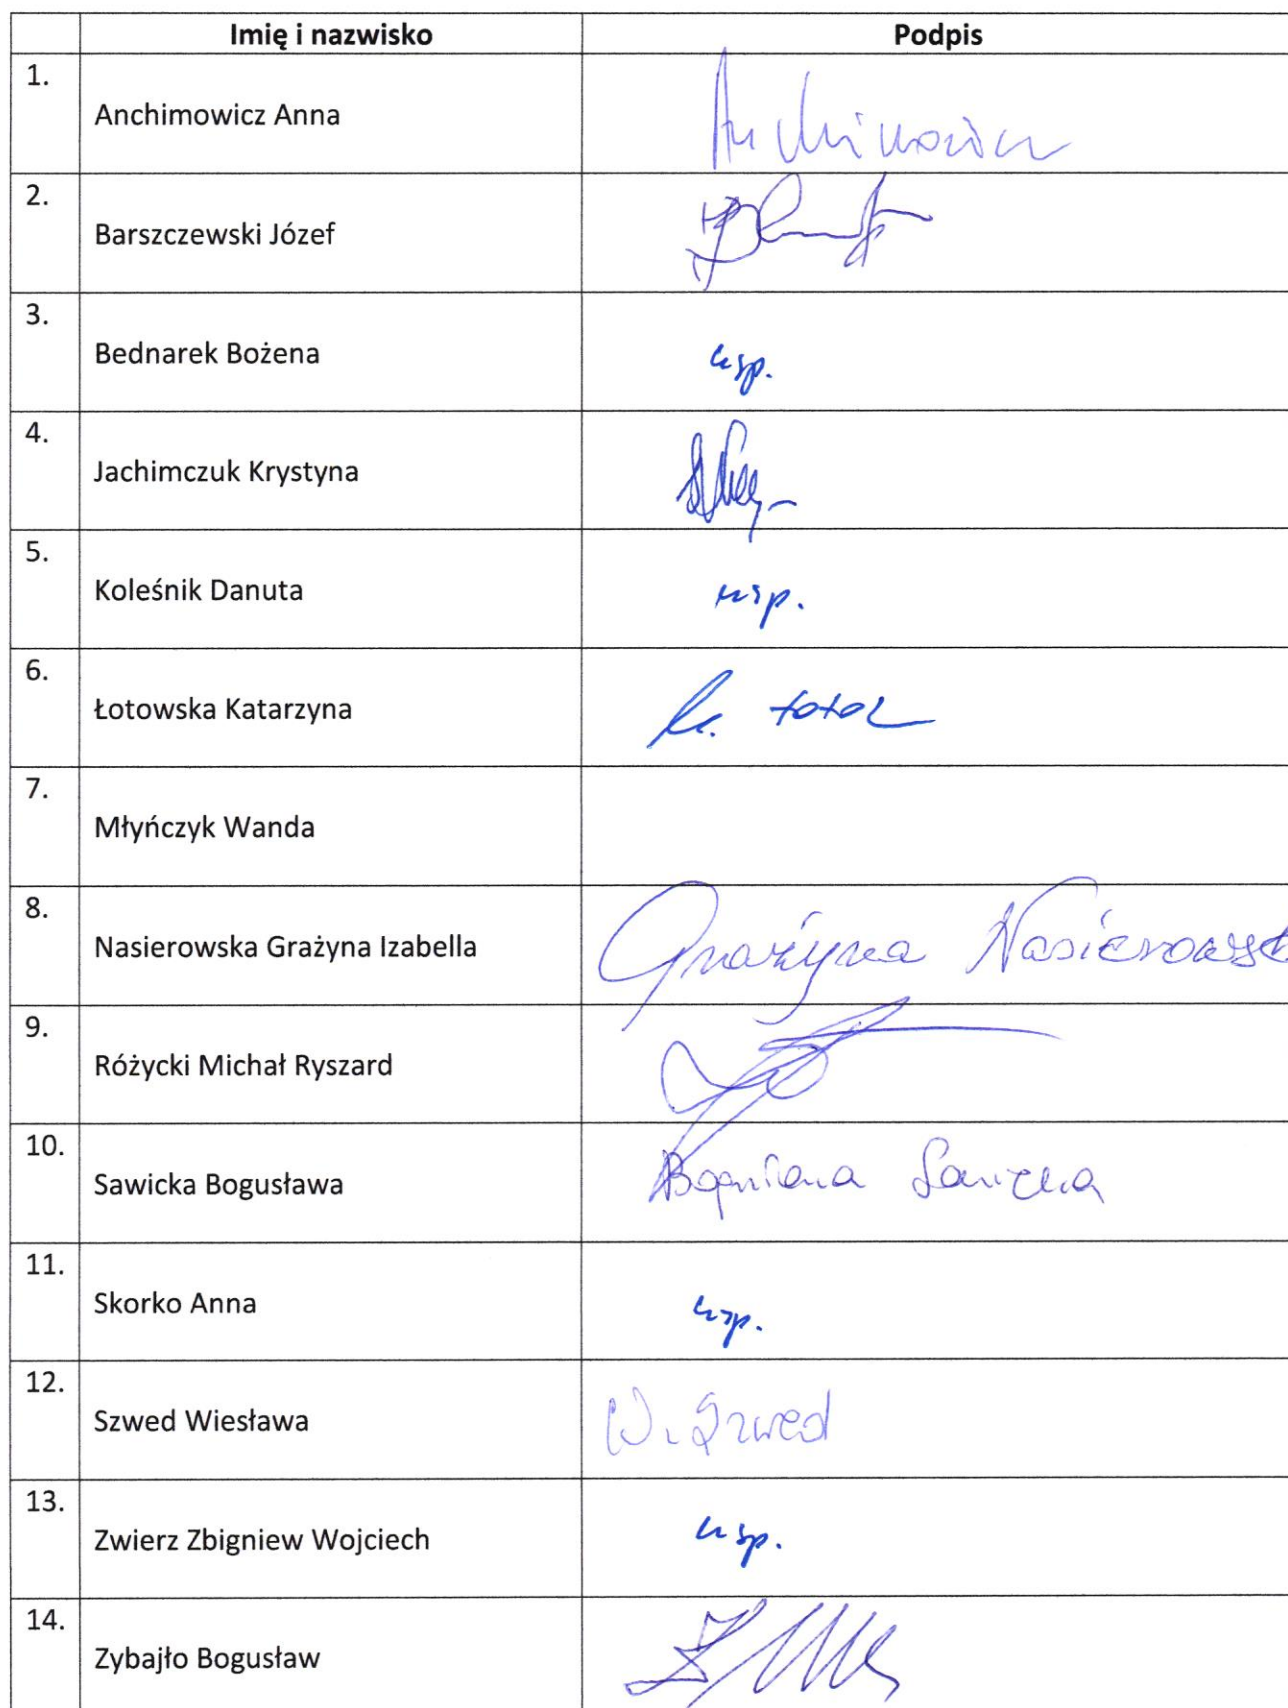 Imię i nazwisko Podpis
1. Anchimowicz Anna Anchimowicz
2. Barszczewski Józef
3. Bednarek Bożena usp.
4. Jachimczuk Krystyna
5. Koleśnik Danuta usp.
6. Łotowska Katarzyna K.
7. Młyńczyk Wanda
8. Nasierowska Grażyna Izabella Grażyna Nasierowsk
9. Różycki Michał Ryszard
10. Sawicka Bogusława Bogusława Sawicka
11. Skorko Anna usp.
12. Szwed Wiesława W. Szwed
13. Zwierz Zbigniew Wojciech usp.
14. Zybajło Bogusław